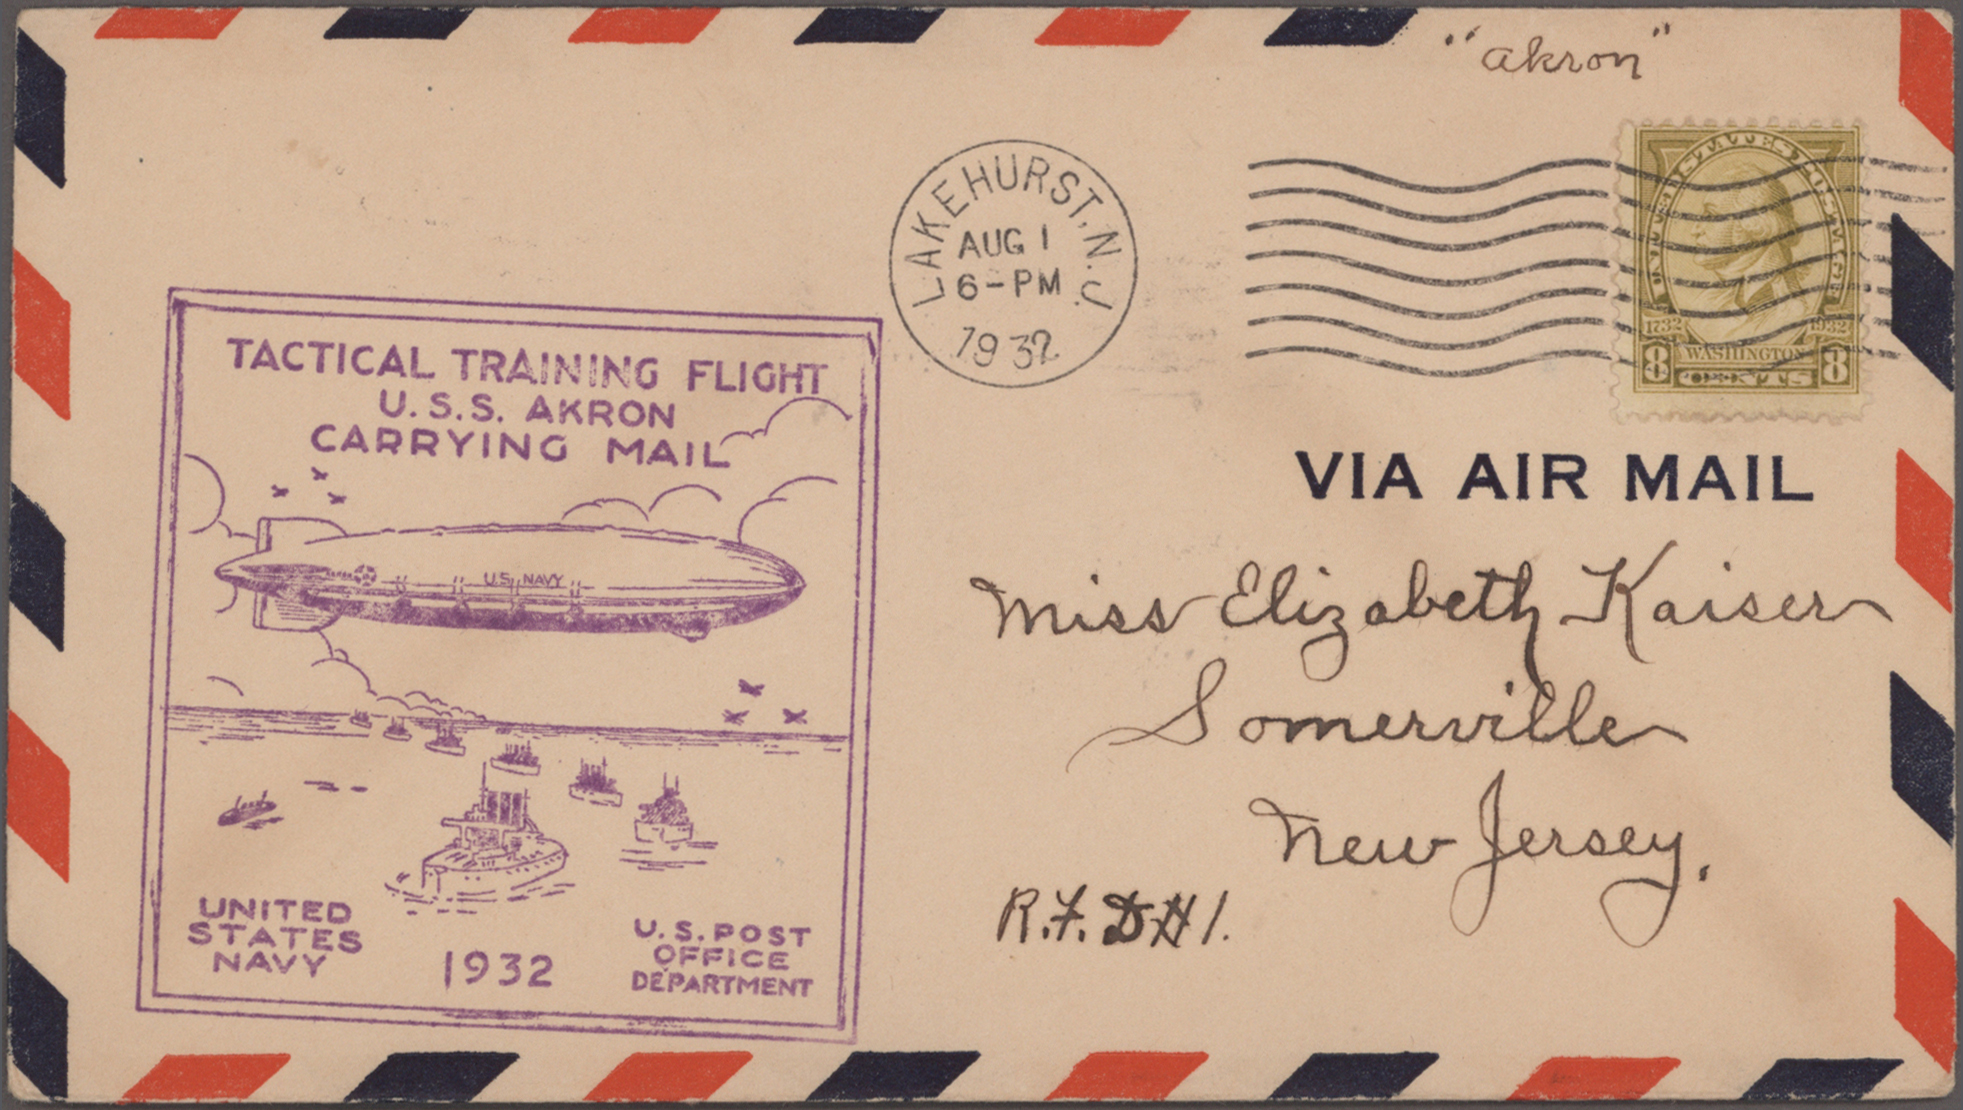 "Akron"
LAKEHURST, N.J.
AUG 1
6-PM
1932
1732 1932
8 WASHINGTON 8
CENTS
TACTICAL TRAINING FLIGHT
U.S.S. AKRON
CARRYING MAIL
U.S. NAVY
UNITED
STATES
NAVY
1932
U.S. POST
OFFICE
DEPARTMENT
VIA AIR MAIL
Miss Elizabeth Kaiser
Somerville
New Jersey.
R.F.D#1.